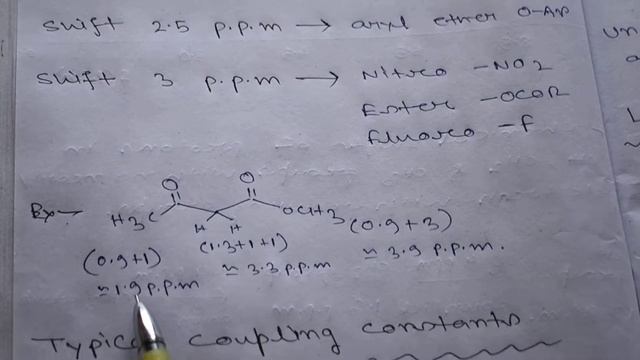 Shift 2.5 p.p.m → aryl ether O-Ar
Shift 3 p.p.m → Nitro -NO2
Ester -OCOR
Fluoro -F
Ex:- H3C O O OCH3 (0.9+3)
H H
(0.9+1) (1.3+1+1) ≈ 3.9 p.p.m.
≈ 1.9 p.p.m ≈ 3.3 p.p.m
Typical coupling constants